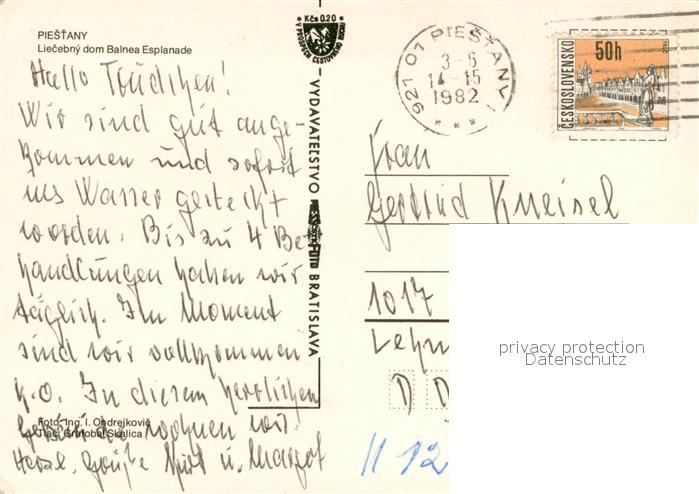 PIEŠŤANY
Liečebný dom Balnea Esplanade
Hallo Trudchen!
Wir sind gut ange-
kommen und sofort
ins Wasser gesteckt
worden. Bis zu 4 Be-
handlungen haben wir
täglich. Im Moment
sind wir vollkommen
k.o. In diesem herrlichen
Gebäude wohnen wir.
Herzl. Grüße Kurt u. Margot
Foto: Ing. I. Ondrejkovič
Tlač: Grafobal Skalica
Kčs 0.20
V PROSPECH CESTOVNÉHO RUCHU
VYDAVATEĽSTVO
BRATISLAVA
921 01 PIEŠŤANY 1
3-6
14-15
1982
ČESKOSLOVENSKO
50h
Frau
Gertrud Kneisel
1017
Lehn
D D
1112
privacy protection
Datenschutz